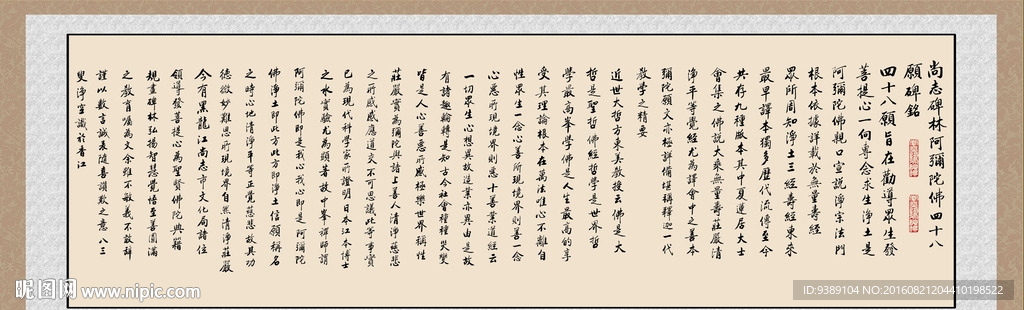 尚志碑林阿彌陀佛四十八
願碑銘
四十八願旨在勸導眾生發
菩提心一向專念求生淨土是
阿彌陀佛親口宣說淨宗法門
根本依據詳載於無量壽經
眾所周知淨土三經壽經東來
最早譯本獨多歷代流傳至今
共存九種版本其中夏蓮居大士
會集之佛說大乘無量壽莊嚴清
淨平等覺經尤為譯會中之善本
彌陀願文亦極詳備堪稱釋迦一代
教學之精要
近世大哲方東美教授云佛是大
哲是聖哲佛經哲學是世界哲
學最高峯學佛是人生最高的享
受其理論根本在萬法唯心不離自
性眾生一念心善所現境界則善一念
心惡所現境界則惡十善業道經云
一切眾生心想異故造業亦異由是故
有諸趣輪轉是知古今社會種種災變
皆是人心善惡所感極樂世界稱性
莊嚴實為彌陀與諸上善人清淨慈悲
之所感感應道交不可思議此等事實
已為現代科學家所證明日本江本博士
之水實驗尤為顯著故中峯禪師謂
阿彌陀佛即是我心我心即是阿彌陀
佛淨土即此方此方即淨土信願稱名
之時心地清淨平等正覺慈悲故其功
德微妙難思所現境界自然清淨莊嚴
今有黑龍江尚志市文化局諸位
領導發菩提心為聖賢佛陀典籍
規畫碑林弘揚智慧覺悟至善圓滿
之教育囑為文余雖不敏義不敢辭
謹以數言誠表隨喜讚歎之意八三
叟淨空識於香江
昵图网 www.nipic.com
ID:9389104 NO:20160821204410198522